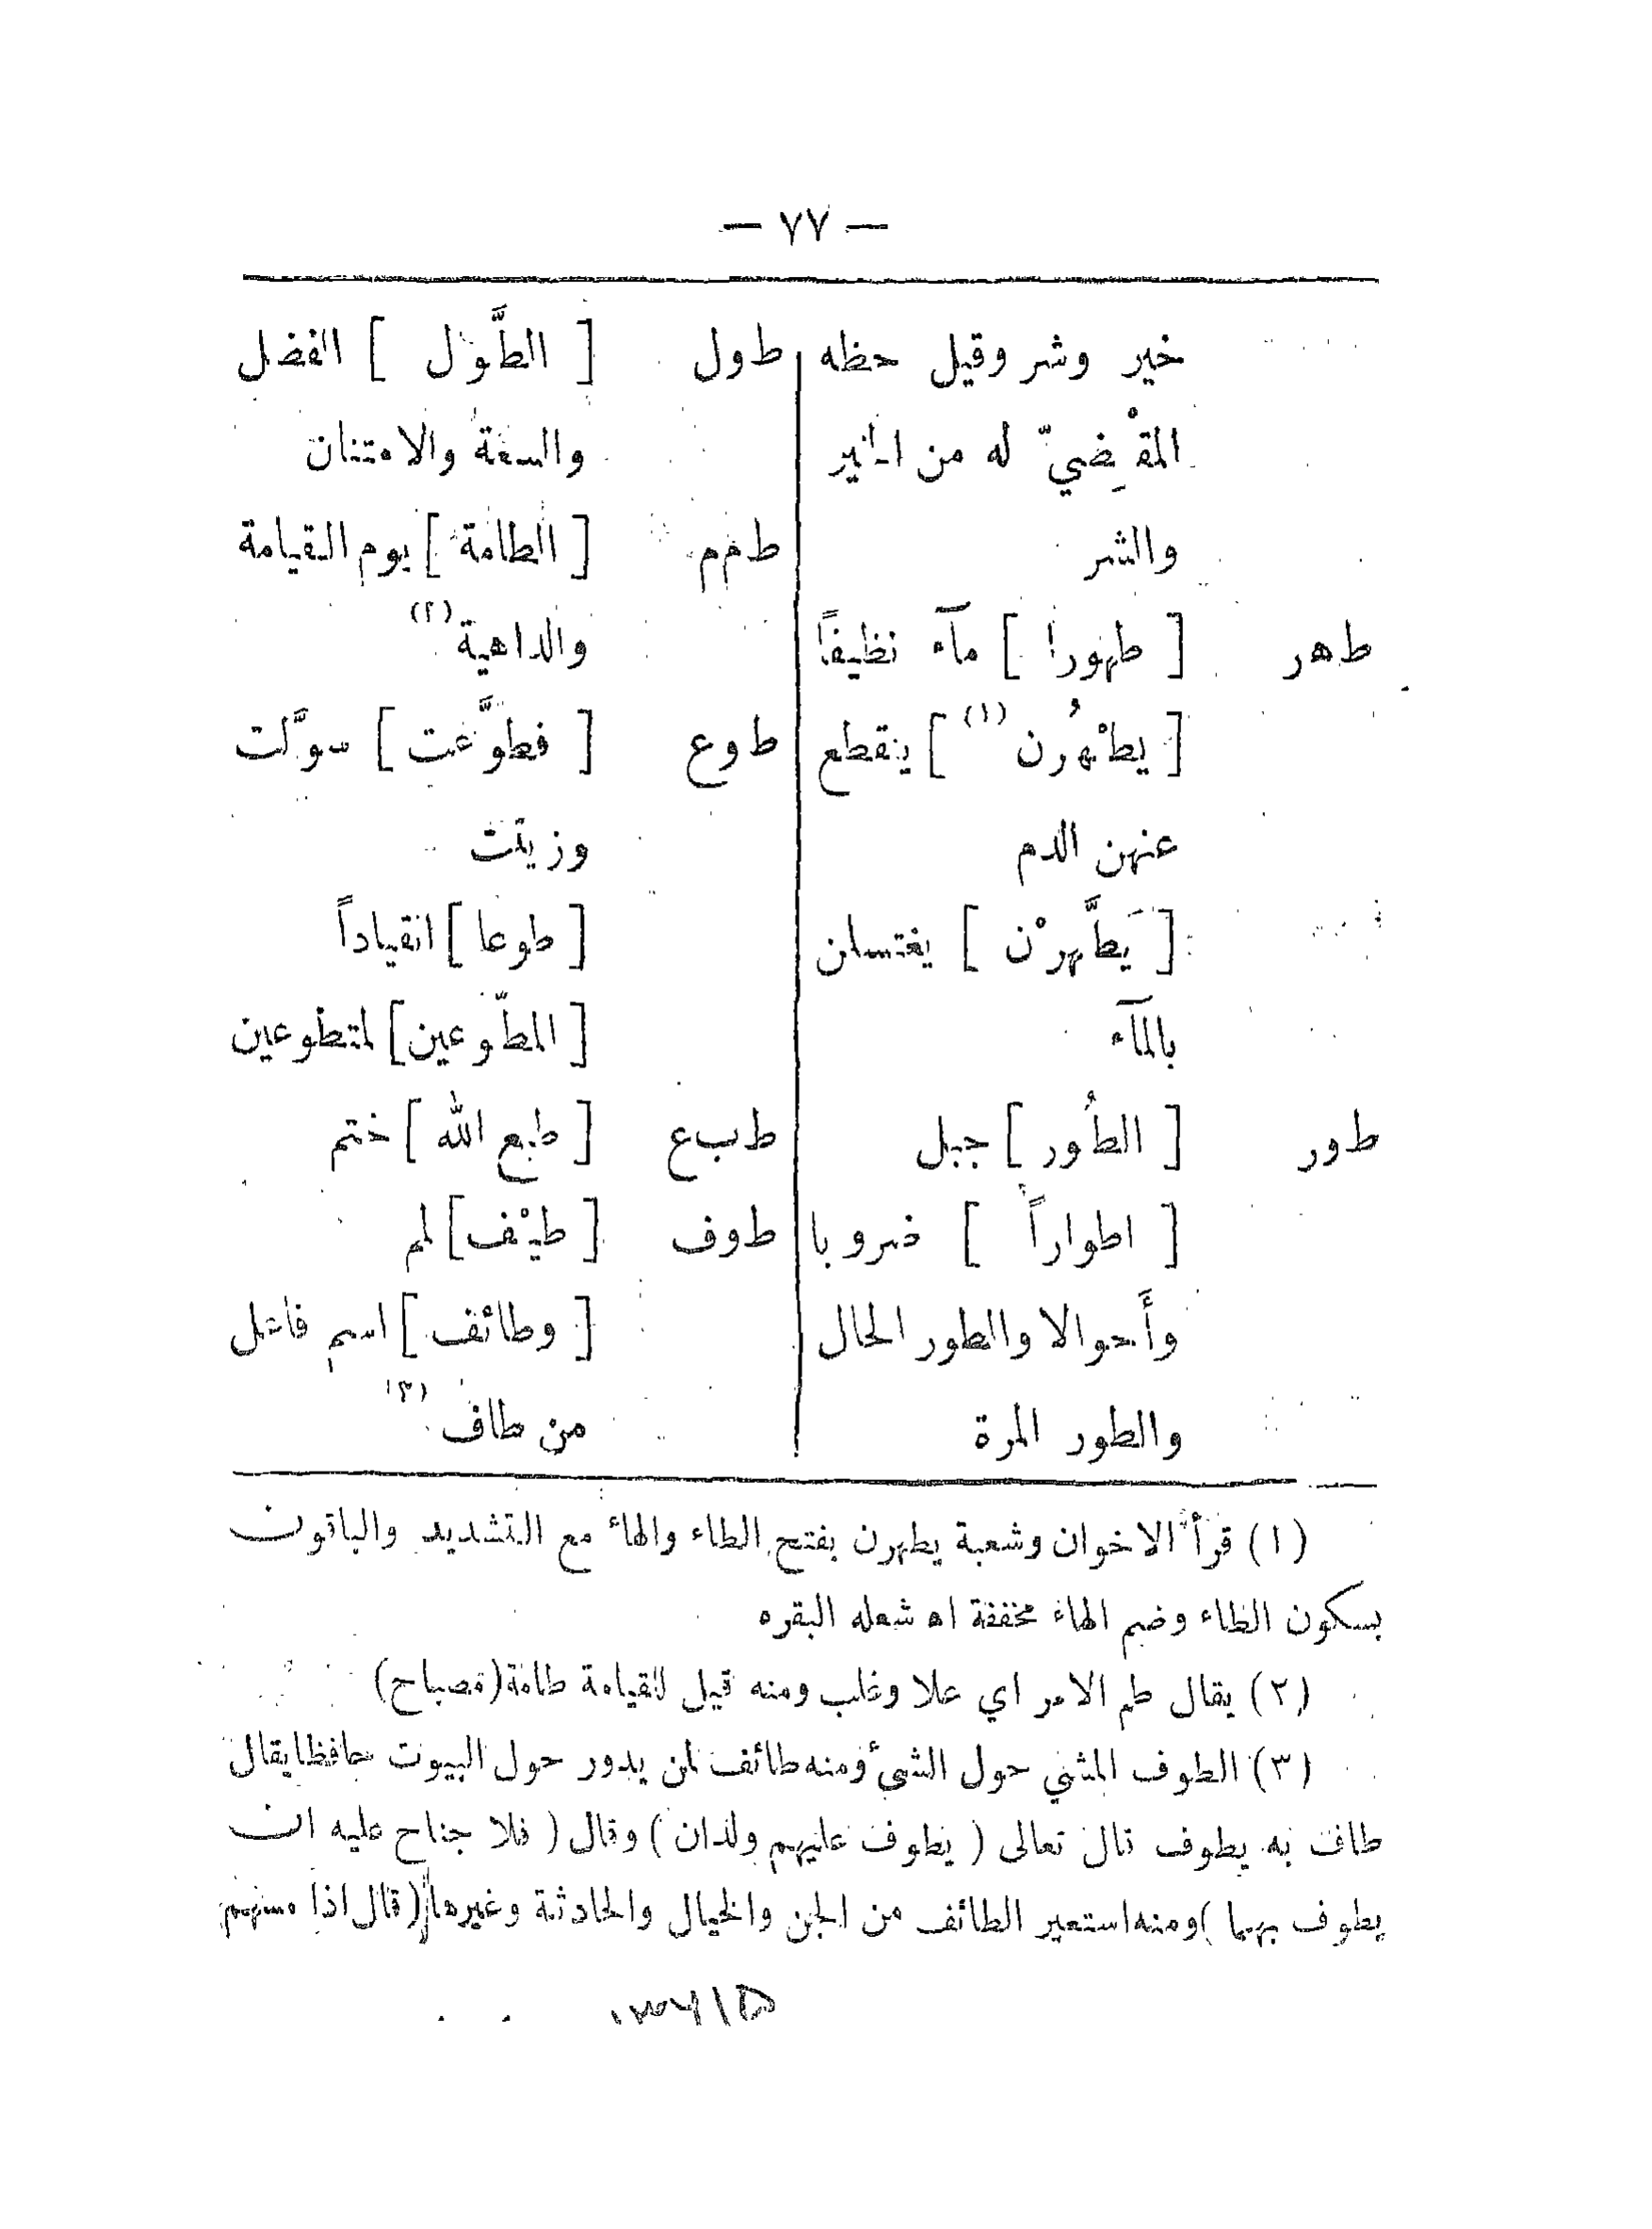 — ٧٧ —
خير وشر وقيل حظه
المقْضِيّ له من الخير
والشر
طهر [ طهورا ] مآء نظيفاً
[ يطْهُرن (١) ] ينقطع
عنهن الدم
[ يَطَّهرْن ] يغتسلن
بالمآء
طور [ الطُور ] جبل
[ اطواراً ] ضروبا
وأَحوالا والطور الحال
والطور المرة
طول [ الطَّوْل ] الفضل
والسعة والامتنان
طمم [ الطامة ] يوم القيامة
والداهية (٢)
طوع [ فطوَّعت ] سوَّلت
وزينت
[ طوعا ] انقياداً
[ المطّوعين ] لمتطوعين
طبع [ طبع الله ] ختم
طوف [ طيْف ] لمم
[ وطائف ] اسم فاعل
من طاف (٣)
(١) قرأ الاخوان وشعبة يطهرن بفتح الطاء والهاء مع التشديد والباقون
بسكون الطاء وضم الهاء مخففة اه شعله البقره
(٢) يقال طم الامر اي علا وغلب ومنه قيل للقيامة طامة (مصباح)
(٣) الطوف المشي حول الشئ ومنه طائف لمن يدور حول البيوت حافظا يقال
طاف به يطوف قال تعالى ( يطوف عليهم ولدان ) وقال ( فلا جناح عليه ان
يطوف بهما ) ومنه استعير الطائف من الجن والخيال والحادثة وغيرها ( قال اذا مسهم